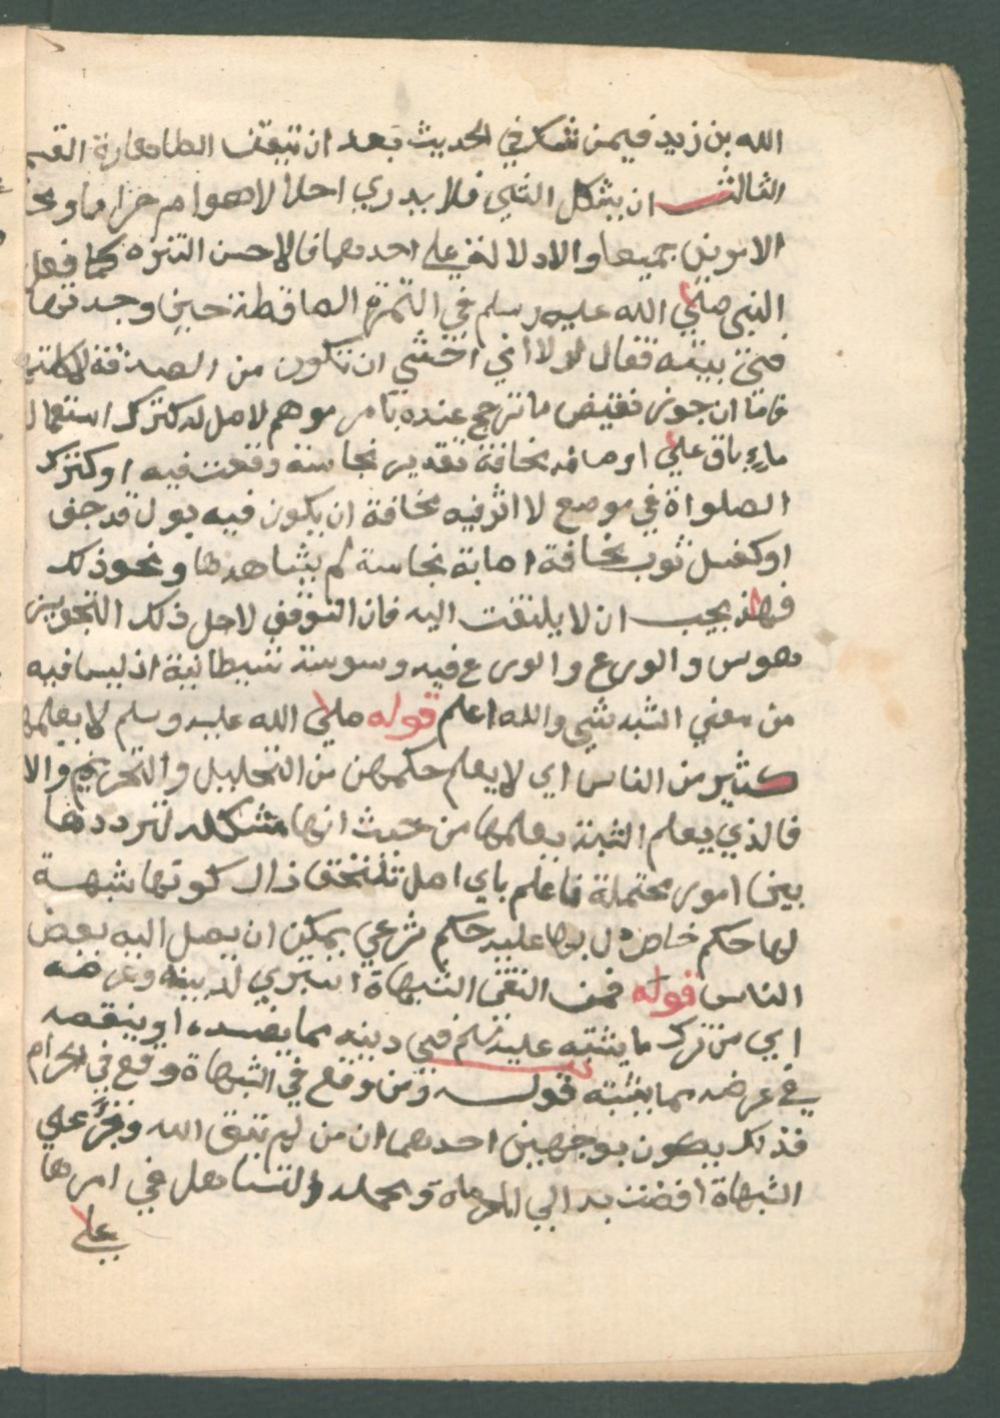 الله بن زيد فيمن شك في الحديث بعد ان تيقن الطاهارة القسم
الثالث ان يشكل الشي فلا يدري احلالا هو ام حرام او يحـ
الامرين جميعا والا دلالة علي احدهما فالاحسن التنزه كما فعل
النبي صلي الله عليه وسلم في التمرة الصاقطة حين وجدتها
في بيته فقال لولا اني اخشي ان تكون من الصدقة لاكلتها
فاما ان جوز نقيض ما ترجح عنده بامر موهم لا اصل له كترك استعمال
ماء باق علي اوصافه مخافة تقدير نجاسة وقعت فيه او كترك
الصلواة في موضع لا اثر فيه مخافة ان يكون فيه بول قد جف
او كغسل ثوب مخافة اصابة نجاسة لم يشاهدها ونحو ذلك
فهاذ يجب ان لا يلتفت اليه فان التوقف لاجل ذلك التجويز
هوس والورع والورع فيه وسوسة شيطانية اذ ليس فيه
من معني الشبه شي والله اعلم قوله صلي الله عليه وسلم لا يعلمها
كثير من الناس اي لا يعلم حكمهن من التحليل والتحريم والا
فالذي يعلم الشبة يعلمها من حيث انها مشكله لترددها
بين امور محتملة فاعلم باي اصل تلتحق زال كونها شبهة
لها حكم خاص عليه حكم شرعي يمكن ان يصل اليه بعض
الناس قوله فمن اتقي الشبهاة استبري لدينه وعرضه
اي من ترك ما يشتبه عليه سلم في دينه مما يفسده او ينقصه
في عرضه مما يشبه قوله ومن وقع في الشبهاة وقع في الحرام
فذلك يكون بوجهين احدهما ان من لم يتق الله وتجرء علي
الشبهاة افضت به الي المحرماة ويحمله التساهل في امرها
علي